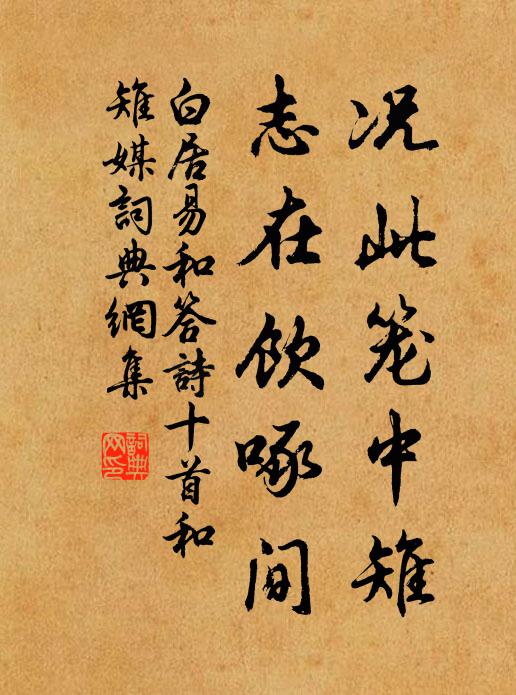 况此笼中雉
志在饮啄间
白居易和答詩十首和
雉媒詞典網集
詞典网印